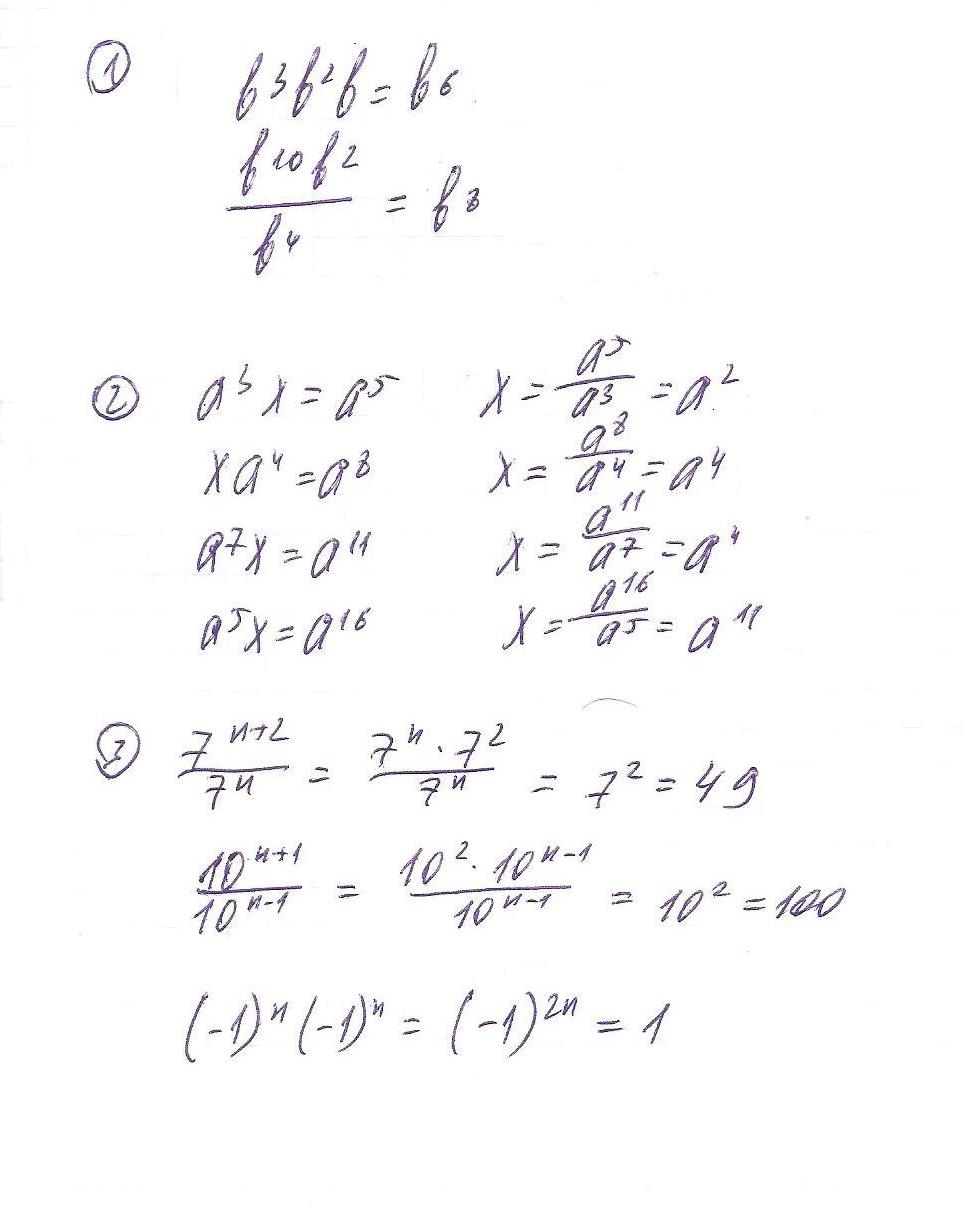 ① b³b²b = b⁶
b¹⁰b² / b⁴ = b⁸
② a³x = a⁵ x = a⁵/a³ = a²
xa⁴ = a⁸ x = a⁸/a⁴ = a⁴
a⁷x = a¹¹ x = a¹¹/a⁷ = a⁴
a⁵x = a¹⁶ x = a¹⁶/a⁵ = a¹¹
③ 7ⁿ⁺²/7ⁿ = 7ⁿ · 7²/7ⁿ = 7² = 49
10ⁿ⁺¹/10ⁿ⁻¹ = 10² · 10ⁿ⁻¹/10ⁿ⁻¹ = 10² = 100
(-1)ⁿ(-1)ⁿ = (-1)²ⁿ = 1